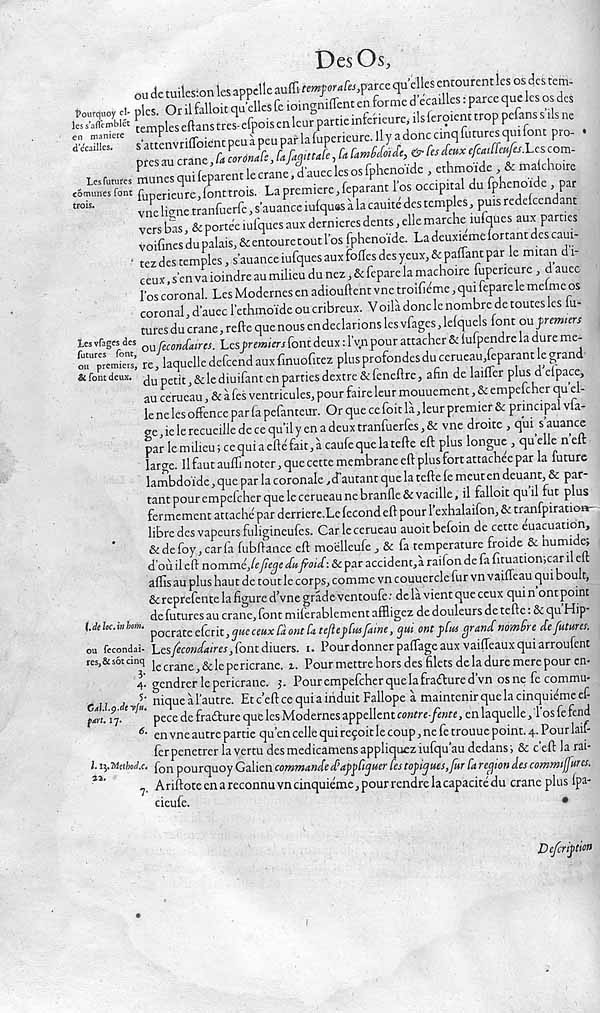 Des Os,
ou de tuiles: on les appelle auſſi temporales, parce qu'elles entourent les os des tem-
Pourquoy el-
les s'aſſemblẽt
en maniere
d'écailles.
ples. Or il falloit qu'elles ſe ioingniſſent en forme d'écailles: parce que les os des
temples eſtans tres-eſpois en leur partie inferieure, ils ſeroient trop peſans s'ils ne
s'attenvriſſoient peu à peu par la ſuperieure. Il y a donc cinq ſutures qui ſont pro-
pres au crane, la coronale, la ſagittale, la lambdoïde, & les deux eſcailleuſes. Les com-
Les ſutures
cõmunes ſont
trois.
munes qui ſeparent le crane, d'auec les os ſphenoïde, ethmoïde, & maſchoire
ſuperieure, ſont trois. La premiere, ſeparant l'os occipital du ſphenoïde, par
vne ligne tranſuerſe, s'auance iuſques à la cauité des temples, puis redeſcendant
vers bas, & portée iuſques aux dernieres dents, elle marche iuſques aux parties
voiſines du palais, & entoure tout l'os ſphenoïde. La deuxiéme ſortant des caui-
tez des temples, s'auance iuſques aux foſſes des yeux, & paſſant par le mitan d'i-
ceux, s'en va ioindre au milieu du nez, & ſepare la machoire ſuperieure, d'auec
l'os coronal. Les Modernes en adiouſtent vne troiſiéme, qui ſepare le meſme os
coronal, d'auec l'ethmoïde ou cribreux. Voilà donc le nombre de toutes les ſu-
tures du crane, reſte que nous en declarions les vſages, leſquels ſont ou premiers
Les vſages des
ſutures ſont,
ou premiers,
& ſont deux.
ou ſecondaires. Les premiers ſont deux: l'vn pour attacher & ſuſpendre la dure me-
re, laquelle deſcend aux ſinuoſitez plus profondes du cerueau, ſeparant le grand
du petit, & le diuiſant en parties dextre & ſeneſtre, afin de laiſſer plus d'eſpace,
au cerueau, & à ſes ventricules, pour faire leur mouuement, & empeſcher qu'el-
le ne les offence par ſa peſanteur. Or que ce ſoit là, leur premier & principal vſa-
ge, ie le recueille de ce qu'il y en a deux tranſuerſes, & vne droite, qui s'auance
par le milieu; ce qui a eſté fait, à cauſe que la teſte eſt plus longue, qu'elle n'eſt
large. Il faut auſſi noter, que cette membrane eſt plus fort attachée par la ſuture
lambdoïde, que par la coronale, d'autant que la teſte ſe meut en deuant, & par-
tant pour empeſcher que le cerueau ne branſle & vacille, il falloit qu'il fut plus
fermement attaché par derriere. Le ſecond eſt pour l'exhalaiſon, & tranſpiration
libre des vapeurs fuligineuſes. Car le cerueau auoit beſoin de cette éuacuation,
& de ſoy, car ſa ſubſtance eſt moëlleuſe, & ſa temperature froide & humide;
d'où il eſt nommé, le ſiege du froid: & par accident, à raiſon de ſa ſituation; car il eſt
aſſis au plus haut de tout le corps, comme vn couuercle ſur vn vaiſſeau qui boult,
& repreſente la figure d'vne grãde ventouſe: de là vient que ceux qui n'ont point
de ſutures au crane, ſont miſerablement affligez de douleurs de teſte: & qu'Hip-
l. de loc. in hom.
pocrate eſcrit, que ceux là ont la teſte plus ſaine, qui ont plus grand nombre de ſutures.
ou ſecondai-
res, & sõt cinq
Les ſecondaires, ſont diuers. 1. Pour donner paſſage aux vaiſſeaux qui arrouſent
le crane, & le pericrane. 2. Pour mettre hors des filets de la dure mere pour en-
3.
4.
gendrer le pericrane. 3. Pour empeſcher que la fracture d'vn os ne ſe commu-
5.
nique à l'autre. Et c'eſt ce qui a induit Fallope à maintenir que la cinquiéme eſ-
Gal. l. 9. de vſu.
part. 17.
pece de fracture que les Modernes appellent contre-fente, en laquelle, l'os ſe fend
6.
en vne autre partie qu'en celle qui reçoit le coup, ne ſe trouue point. 4. Pour laiſ-
ſer penetrer la vertu des medicamens appliquez iuſqu'au dedans; & c'eſt la rai-
l. 13. Method. c.
22.
ſon pourquoy Galien commande d'appliquer les topiques, ſur la region des commiſſures.
7.
Ariſtote en a reconnu vn cinquiéme, pour rendre la capacité du crane plus ſpa-
cieuſe.
Deſcription